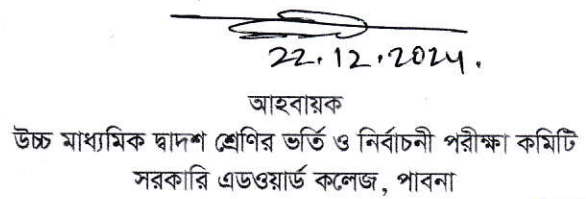 22.12.2024.
আহবায়ক
উচ্চ মাধ্যমিক দ্বাদশ শ্রেণির ভর্তি ও নির্বাচনী পরীক্ষা কমিটি
সরকারি এডওয়ার্ড কলেজ, পাবনা